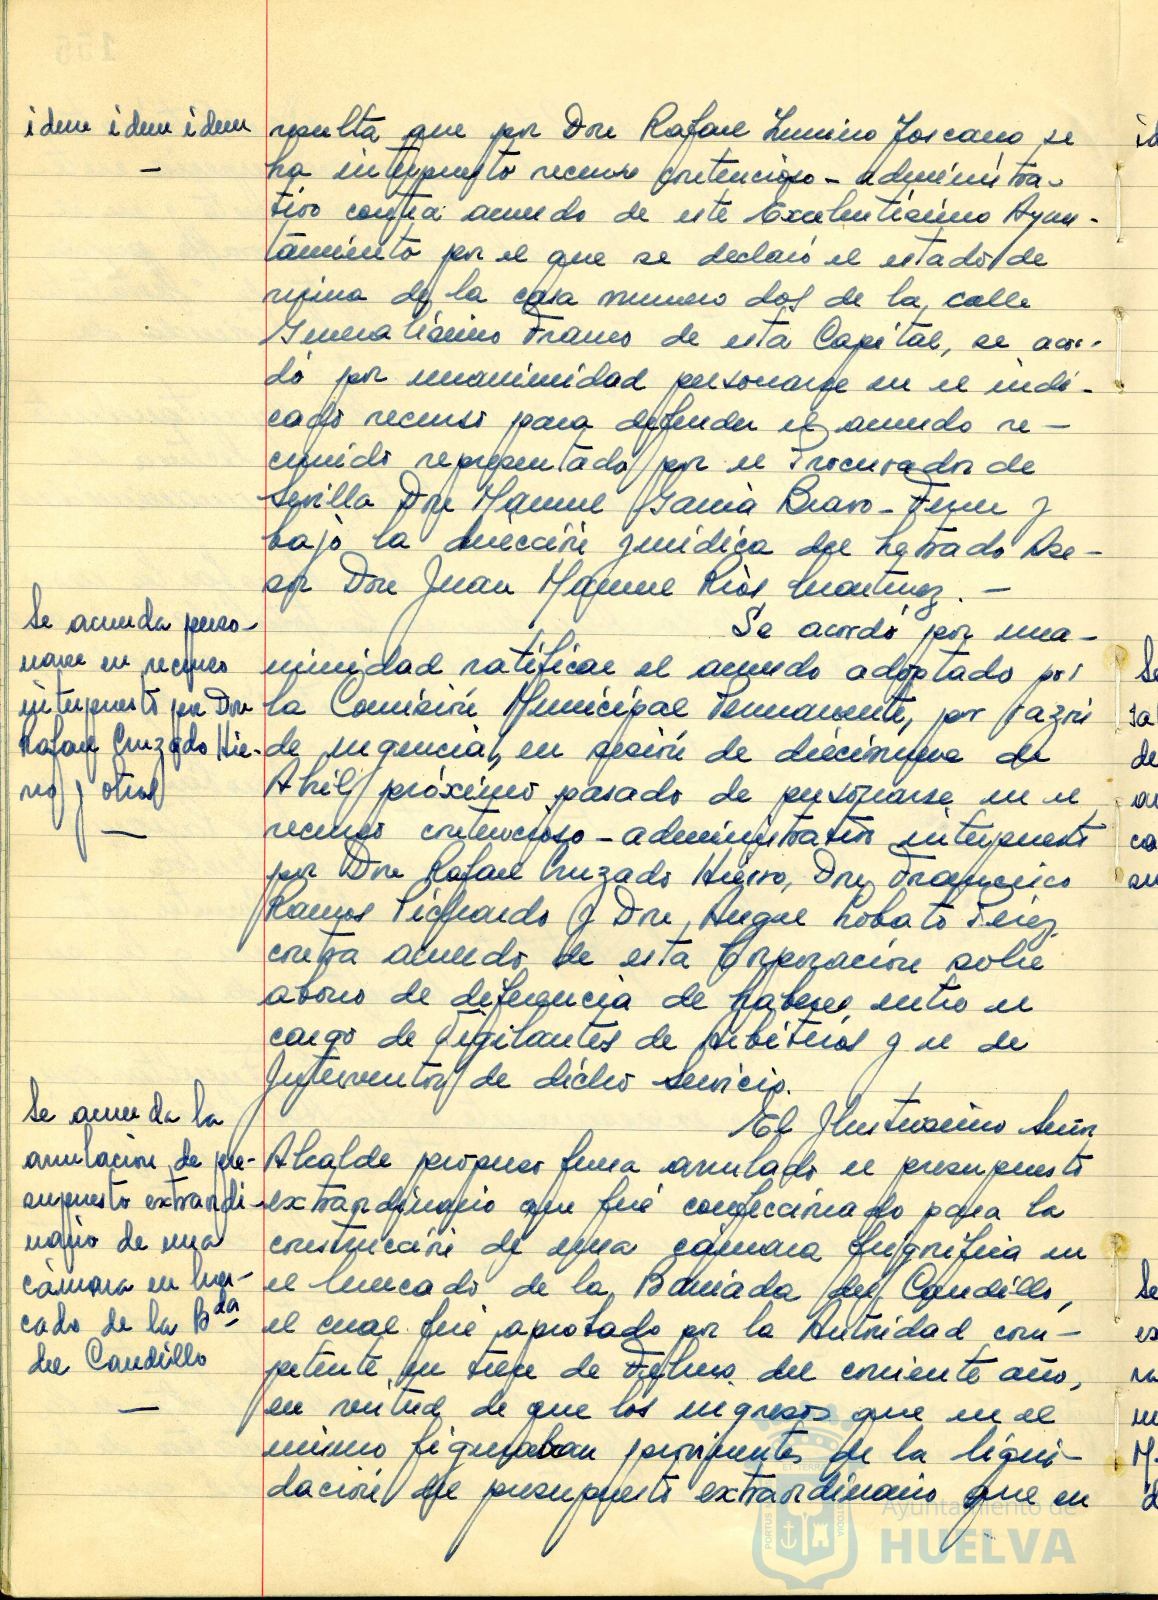 idem idem idem
—
resulta que por Don Rafael Toscano se
ha interpuesto recurso contencioso-administra-
tivo contra acuerdo de este Excelentísimo Ayun-
tamiento por el que se declaró el estado de
ruina de la casa numero dos de la calle
Generalísimo Franco de esta Capital, se acor-
dó por unanimidad personarse en el indi-
cado recurso para defender el acuerdo re-
currido representado por el Procurador de
Sevilla Don Manuel García Bravo-Ferrer y
bajo la dirección jurídica del Letrado Ase-
sor Don Juan Manuel Ríos Martínez. —
Se acuerda perso-
narse en recurso
interpuesto por Don
Rafael Cruzado Hie-
rro y otros
—
Se acordó por una-
nimidad ratificar el acuerdo adoptado por
la Comisión Municipal Permanente, por razón
de urgencia, en sesión de diecinueve de
Abril próximo pasado de personarse en el
recurso contencioso-administrativo interpuesto
por Don Rafael Cruzado Hierro, Don Francisco
Ramos Pichardo y Don Angel Lobato Pérez
contra acuerdo de esta Corporación sobre
abono de diferencia de haberes entre el
cargo de Vigilantes de Arbitrios y el de
Interventor de dicho Servicio.
Se acuerda la
anulación de pre-
supuesto extraordi-
nario de una
cámara en Mer-
cado de la Bda
del Caudillo
—
El Ilustrísimo Señor
Alcalde propuso fuera anulado el presupuesto
extraordinario que fué confeccionado para la
construcción de una cámara frigorífica en
el Mercado de la Barriada del Caudillo,
el cual fué aprobado por la Autoridad com-
petente en trece de Febrero del corriente año,
en virtud de que los ingresos que en el
mismo figuraban provinentes de la liqui-
dación del presupuesto extraordinario que en
Ayuntamiento de
HUELVA